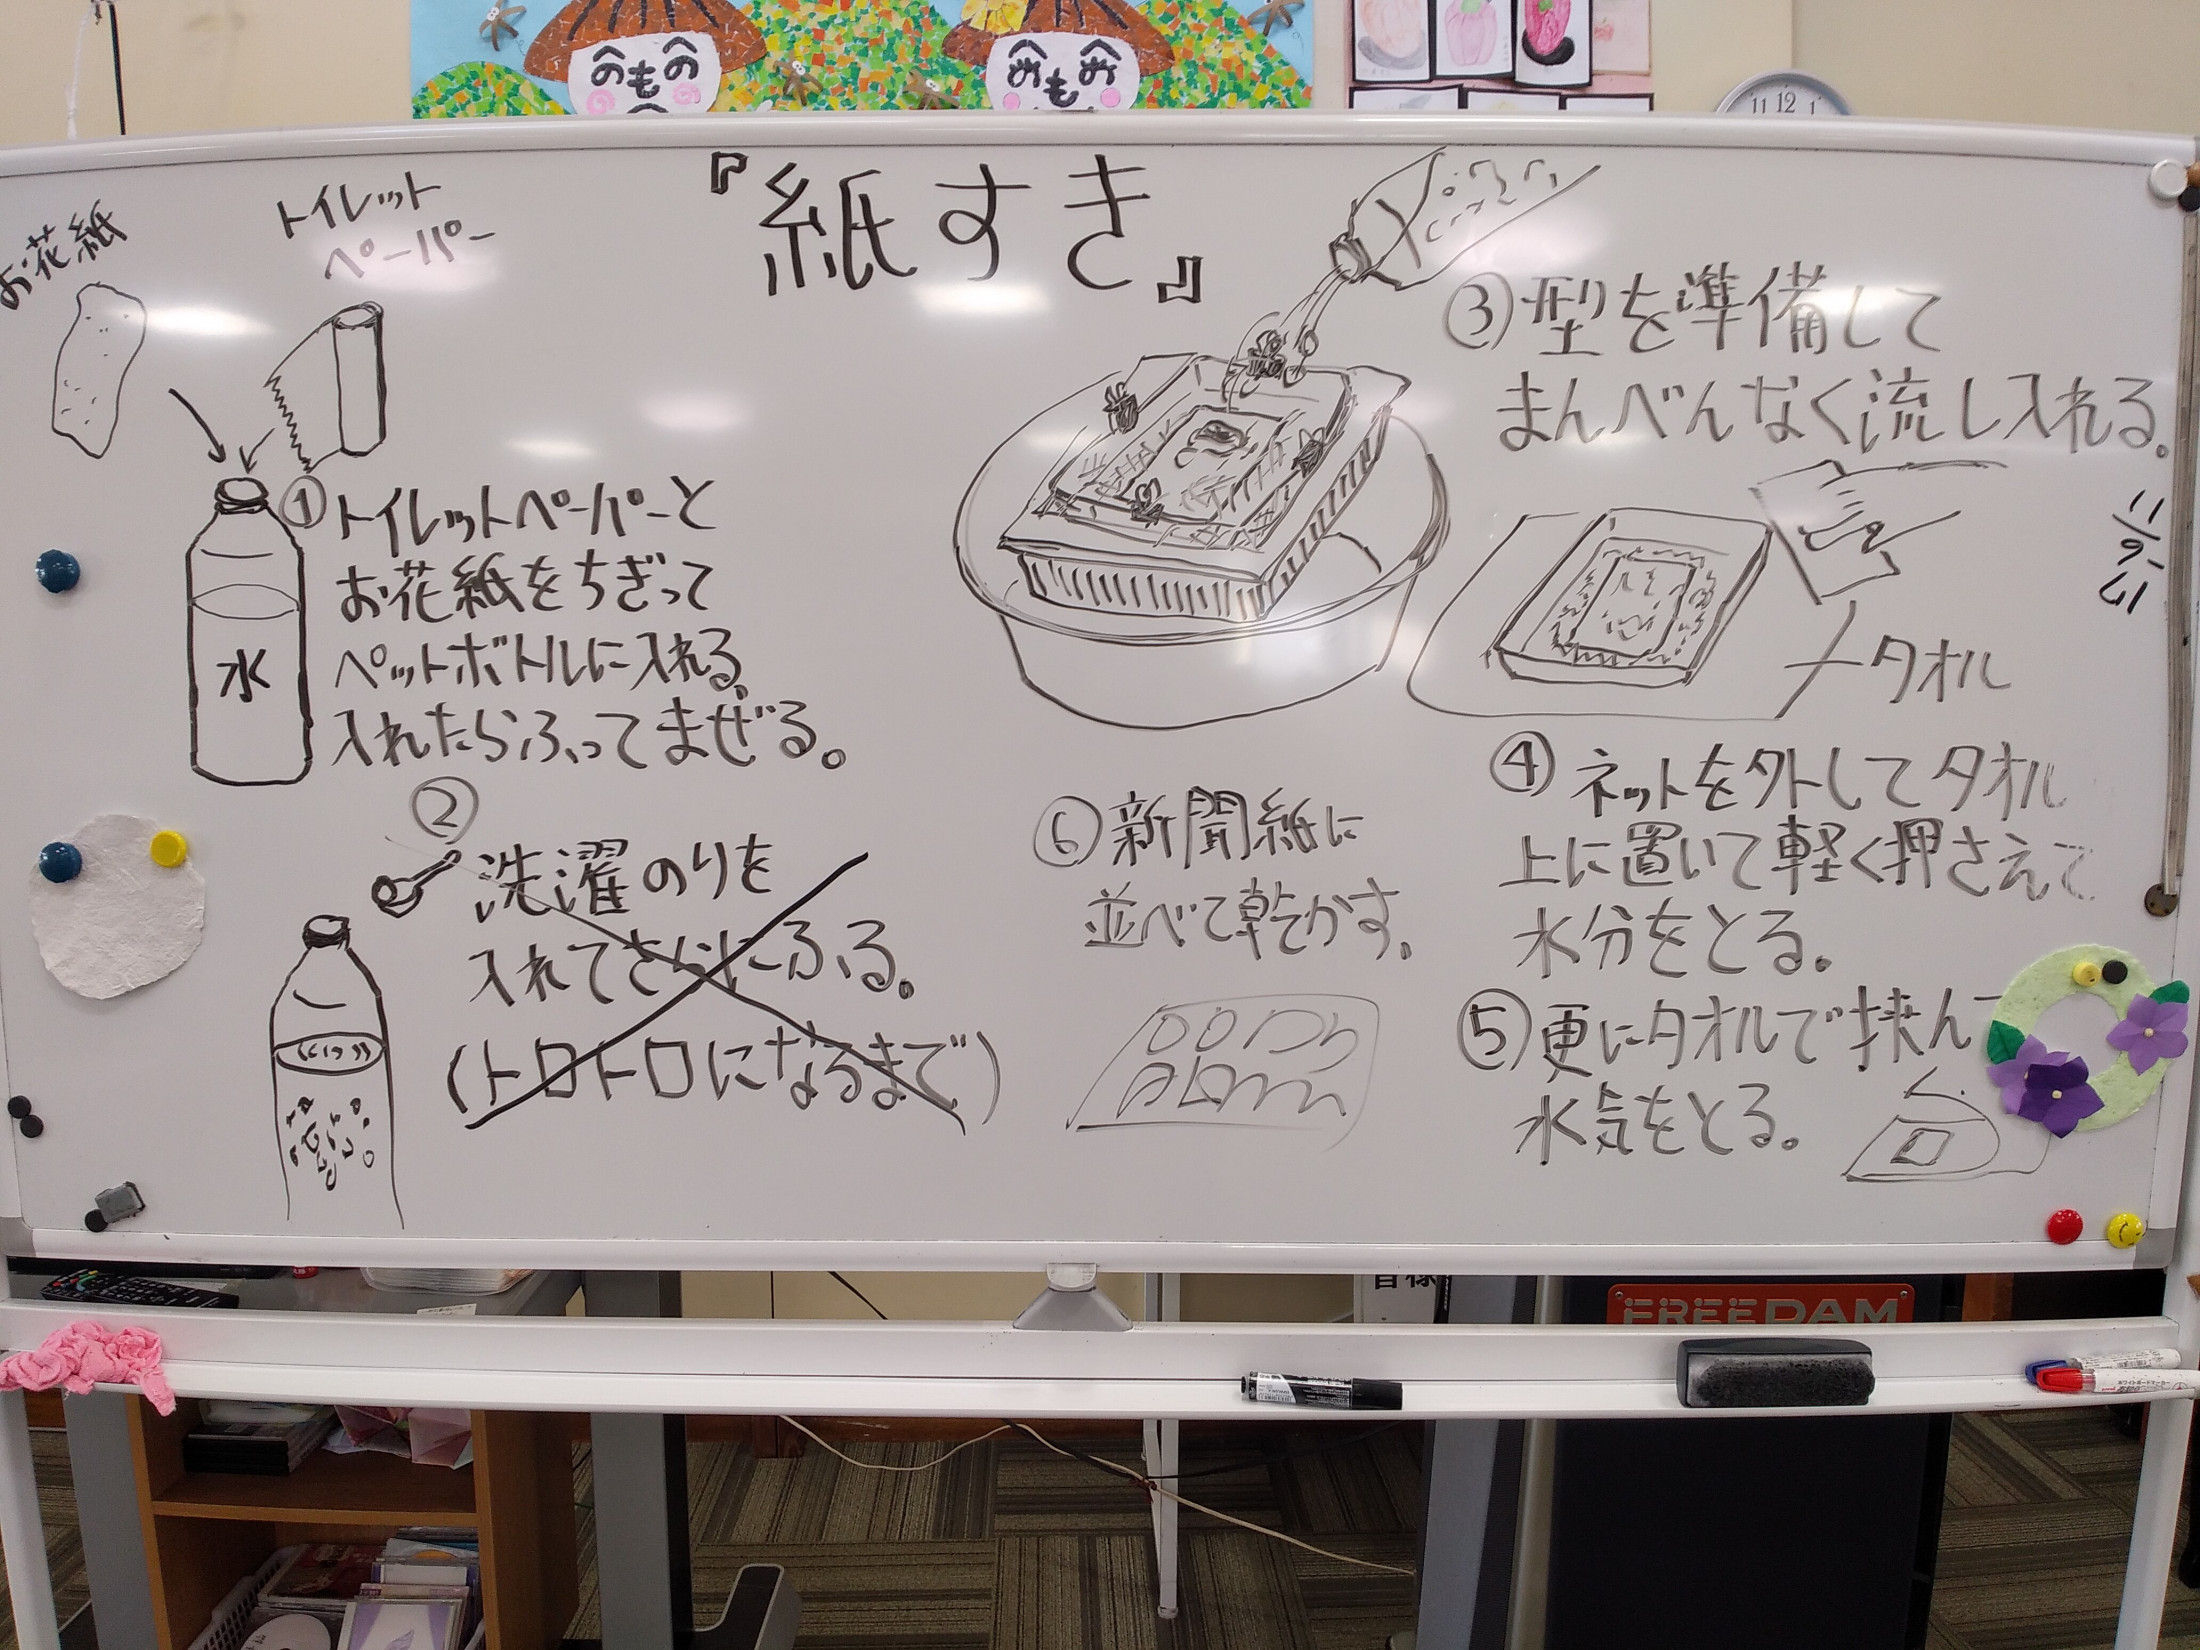 のものへ
11 12 1
『紙すき』
お花紙
トイレット
ペーパー
水
①トイレットペーパーと
お花紙をちぎって
ペットボトルに入れる。
入れたらふってまぜる。
②
洗濯のりを
入れてさらにふる。
(トロトロになるまで)
③型を準備して
まんべんなく流し入れる。
タオル
④ネットを外してタオル
上に置いて軽く押さえて
水分をとる。
⑤更にタオルで挟んで
水気をとる。
⑥新聞紙に
並べて乾かす。
皆様
FREEDAM